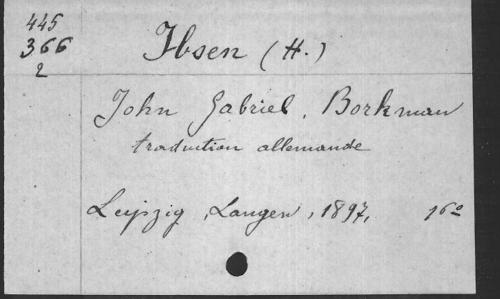 445
366
2
Ibsen (H.)
John Gabriel, Borkman
traduction allemande
Leipzig, Langen, 1897, 16º